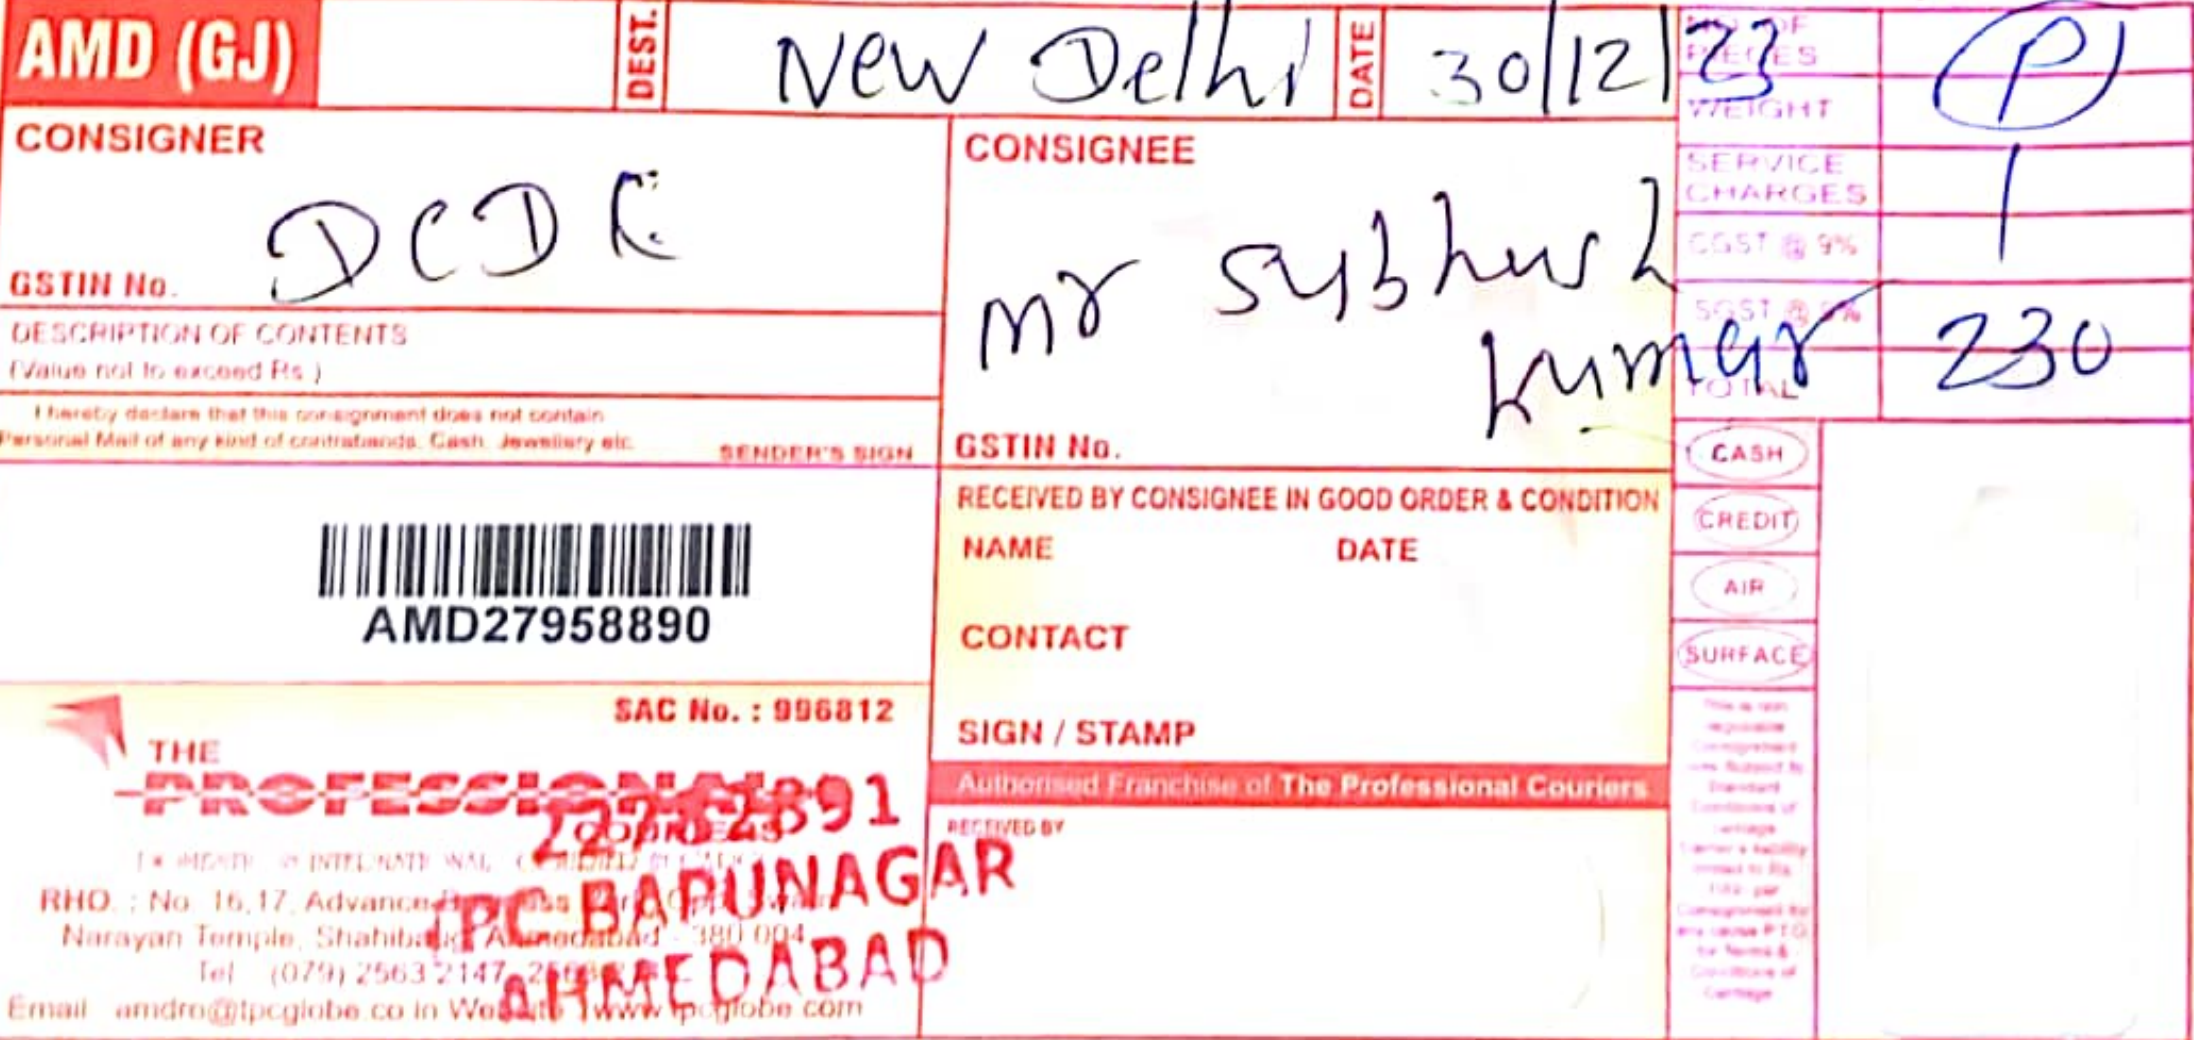 AMD (GJ)
DEST.
New Delhi
DATE
30/12/23
NO OF PIECES
P
WEIGHT
SERVICE CHARGES
CGST @ 9%
SGST @ 9%
TOTAL
230
CONSIGNER
DCDR
GSTIN No.
DESCRIPTION OF CONTENTS
(Value not to exceed Rs.)
I hereby declare that this consignment does not contain
Personal Mail of any kind of contrabands, Cash, Jewellery etc.
SENDER'S SIGN
AMD27958890
CONSIGNEE
Mr Subhush
Kumar
GSTIN No.
RECEIVED BY CONSIGNEE IN GOOD ORDER & CONDITION
NAME
DATE
CONTACT
SIGN / STAMP
Authorised Franchise of The Professional Couriers
RECEIVED BY
CASH
CREDIT
AIR
SURFACE
SAC No. : 996812
THE
PROFESSIONAL
COURIERS
RHO. : No. 16,17, Advance
Narayan Temple, Shahibaug, Ahmedabad - 380 004
Tel : (079) 2563 2147
Email : amdro@tpcglobe.co.in Website : www.tpcglobe.com
TPC BAPUNAGAR
AHMEDABAD